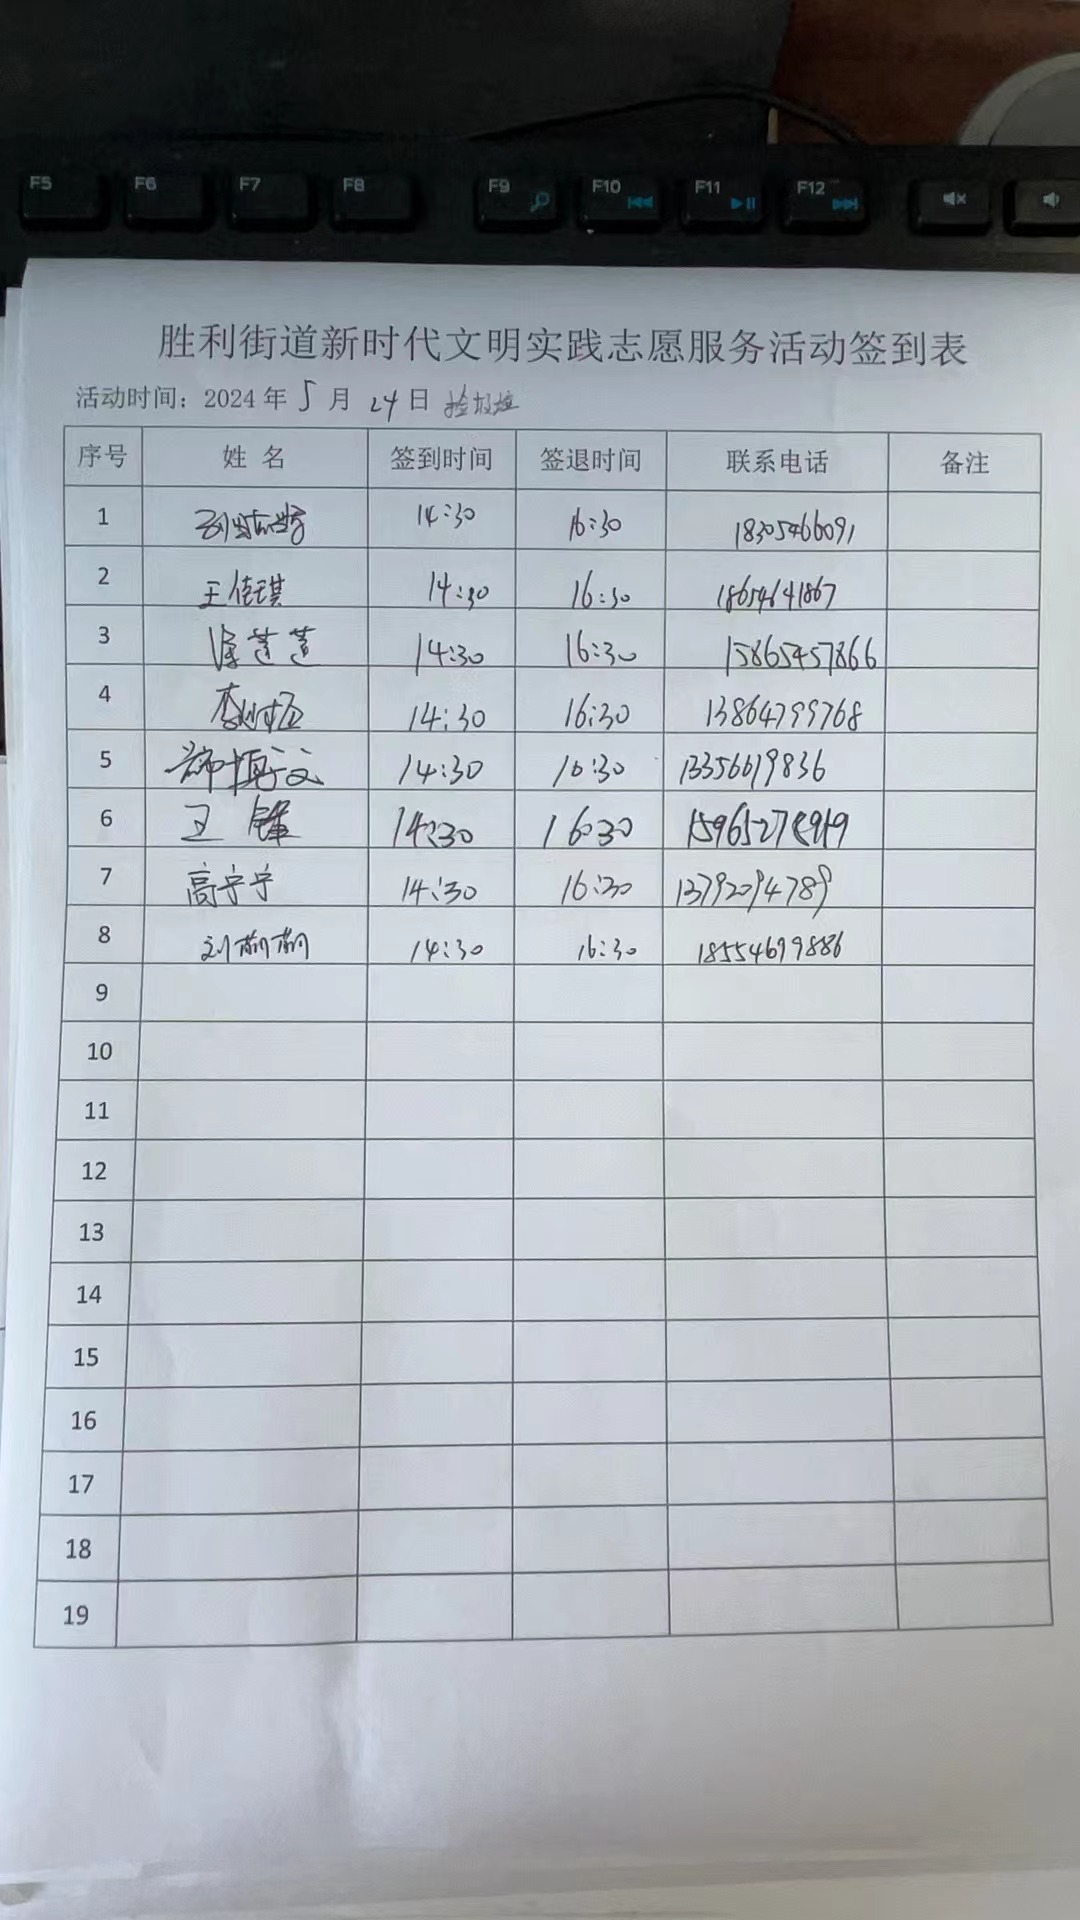 F5 F6 F7 F8 F9 F10 F11 F12
胜利街道新时代文明实践志愿服务活动签到表
活动时间：2024年5月24日 捡垃圾
序号 姓名 签到时间 签退时间 联系电话 备注
1 14:30 16:30 18305466091
2 王佳琪 14:30 16:30 18654641867
3 14:30 16:30 15865457866
4 14:30 16:30 13864799768
5 14:30 16:30 13356619836
6 王锋 14:30 16:30
7 高宁宁 14:30 16:30 13792094789
8 刘萌萌 14:30 16:30 18554699886
9
10
11
12
13
14
15
16
17
18
19